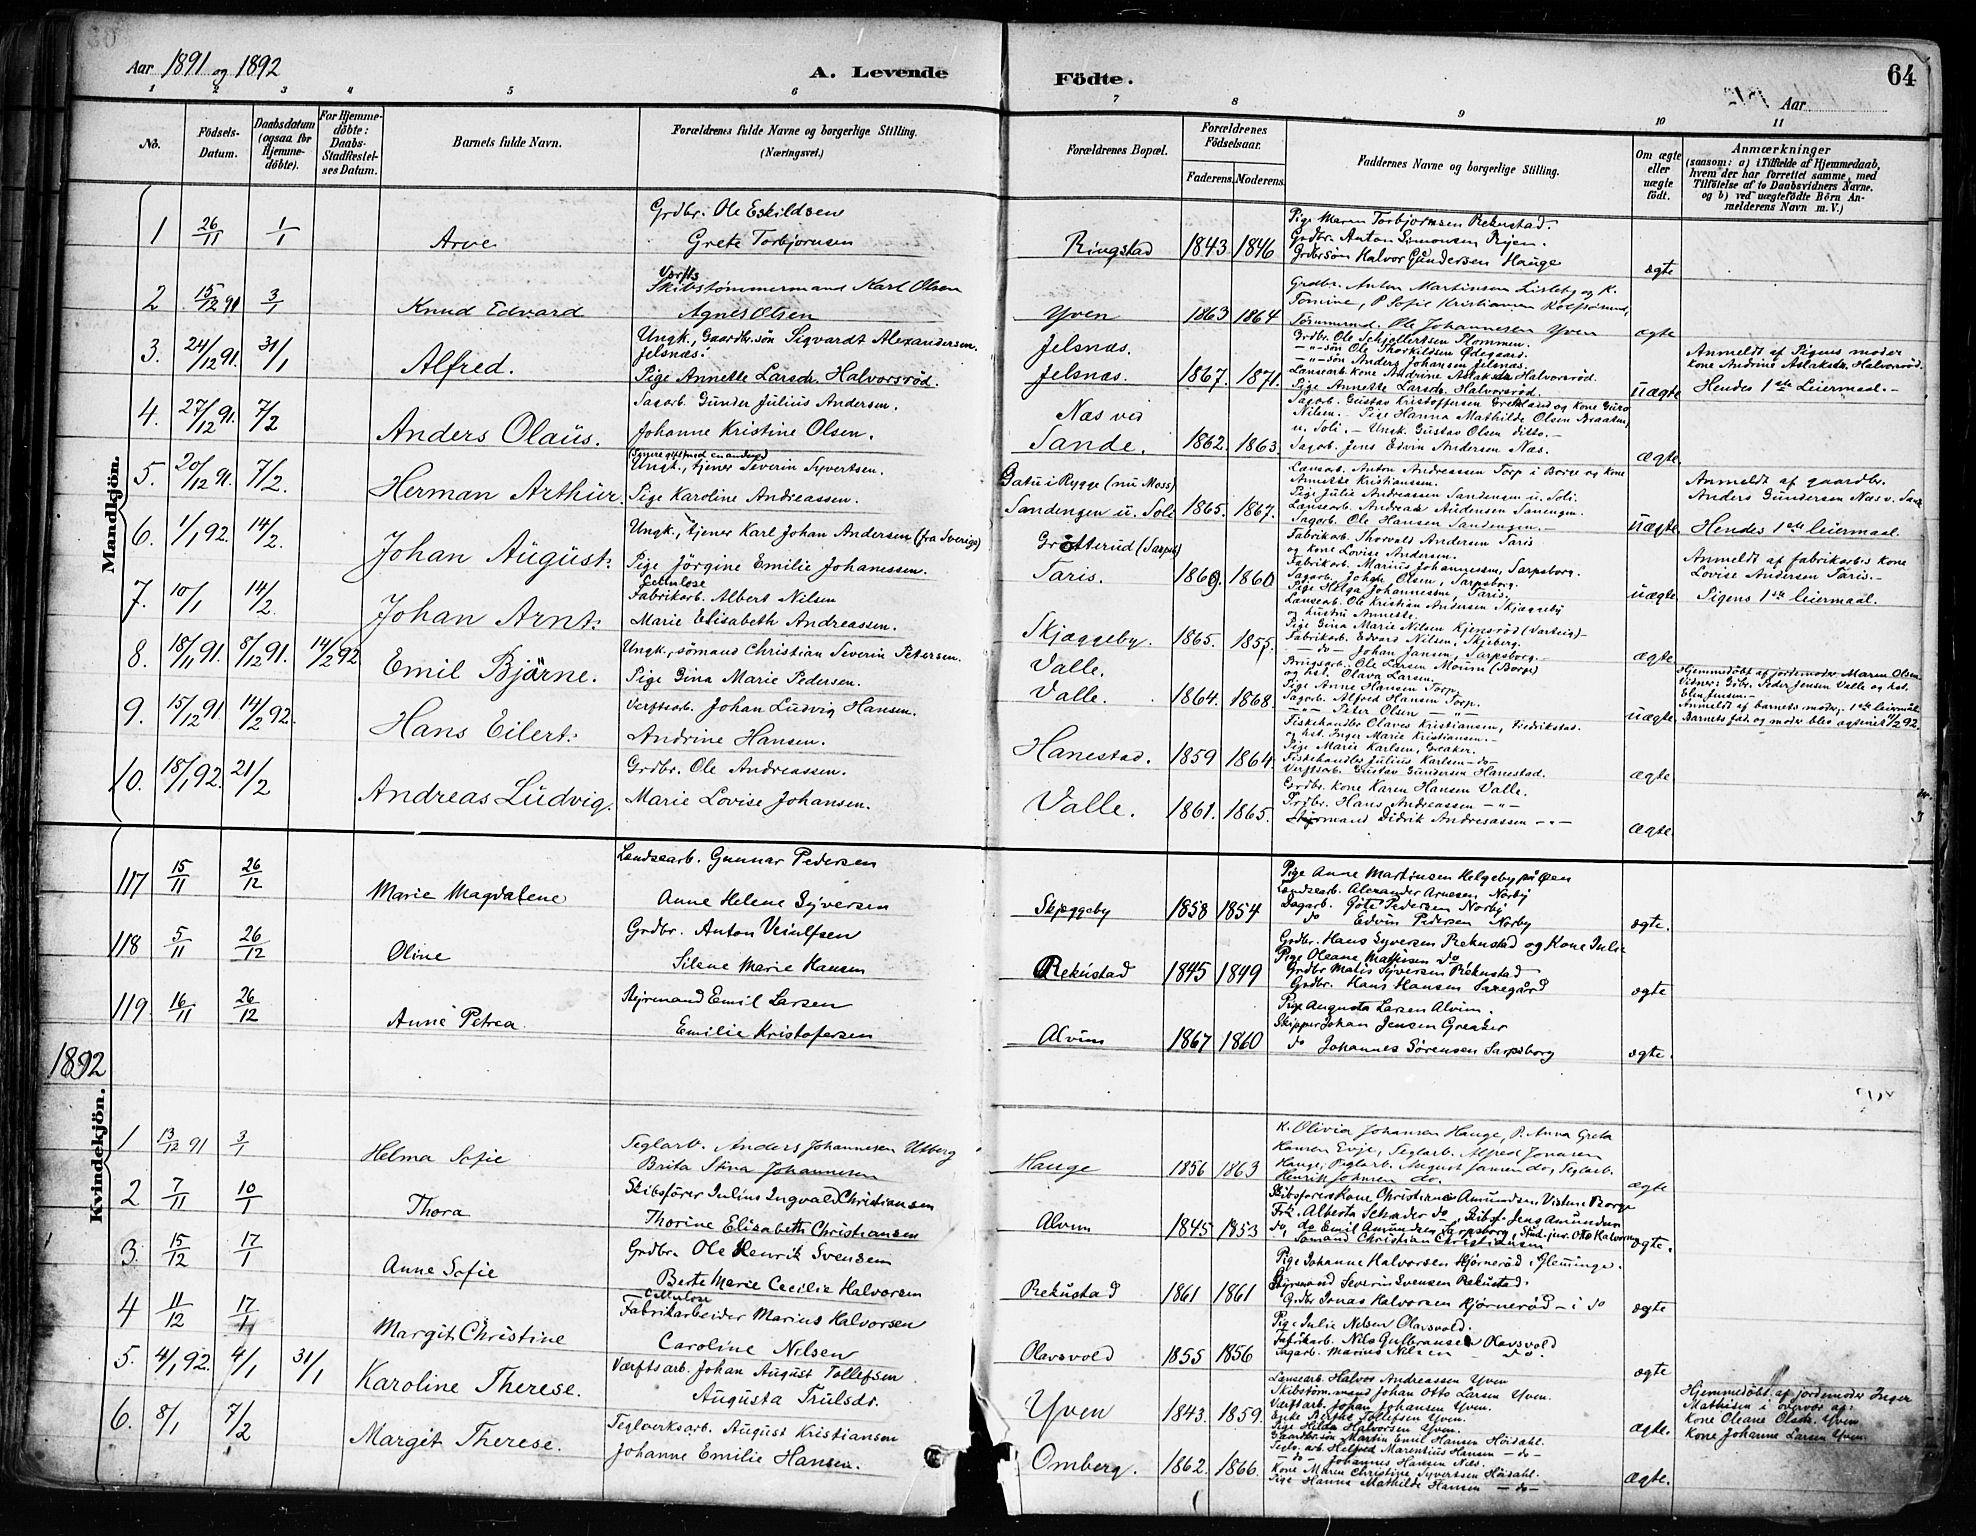 Aar 1891 og 1892
A. Levende Födte.
Aar
64
1 2 3 4 5 6 7 8 9 10 11
No.
Födsels-Datum.
Daabsdatum (ogsaa for Hjemmedöbte).
For Hjemmedöbte: Daabs-Stadfæstelses Datum.
Barnets fulde Navn.
Forældrenes fulde Navne og borgerlige Stilling. (Næringsvei.)
Forældrenes Bopæl.
Forældrenes Födselsaar.
Faderens. Moderens.
Faddernes Navne og borgerlige Stilling.
Om ægte eller uægte födt.
Anmærkninger (saasom: a) i Tilfælde af Hjemmedaab, hvem der har forrettet samme, med Tilföielse af to Daabsvidners Navne. og b) ved uægtefödte Börn Anmelderens Navn m. V.)
Mandkjön.
1 26/11 1/1 Arve
Grdbr. Ole Eskildsen
Grete Torbjornsen
Ringstad 1843 1846
Pige Maren Torbjornsen Rekustad.
Grdbr. Anton Simonsen Ryen.
Grdbrsön Halvor Gundersen Hauge
ægte
2 15/12 91 3/1 Knud Edvard
Værfts
Skibstömmermand Karl Olsen
Agnes Olsen
Yven 1863 1864
Grdbr. Anton Martinsen Lisleby og K.
Tomine, P. Sofie Kristiansen
Tömmermd. Ole Johannesen Yven
ægte
3. 24/12 91. 31/1 Alfred.
Ungk., Gaardbr.sön Sigvardt Alexandersen.
Jelsnæs.
Pige Annette Larsdr. Halvorsröd.
Jelsnæs.
Jelsnæs. 1867. 1871.
Grdbr. Ole Schjellertsen Flommen.
—"—sön Ole Thorkildsen Ödegaard.
—"—sön Anders Johansen Jelsnæs.
Lansearb. kone Andrine Aslaksdr. Halvorsröd.
Pige Annette Larsdr. Halvorsröd.
uægte
Anmeldt af Pigens moder
kone Andrine Aslaksdr. Halvorsröd.
Hendes 1ste Leiermaal.—
4. 27/12 91. 7/2 Anders Olaüs.
Sagarb. Gunder Julius Andersen.
Johanne Kristine Olsen.
Næs ved
Sande. 1862. 1863.
Sagarb. Gustav Kristoffersen Grækland og kone Guro
Nilsen.— Pige Hanna Mathilde Olsen Braaten,
u. Soli.— Ungk. Gustav Olsen ditto.—
Sagarb. Jens Edvin Andersen Næs.
ægte.
5. 20/12 91. 7/2. Herman Arthur.
Ungk., tjener Severin Syvertsen.
Pige Karoline Andreassen.
Gatu i Rygge (nu Moss)
Sandengen u. Soli 1865. 1867.
Lansarb. Anton Andreassen Torp i Borge og kone
Annette Kristiansen.
Pige Julie Andreassen Sandengen u. Soli.
Lansearb. Andreas Andersen Sanengen.
Sagarb. Ole Hansen Sandengen.—
uægte
Anmeldt af gaardbr.
Anders Gundersen Næs v. Sande
Hendes 1ste leiermaal.
6. 1/1 92. 14/2. Johan August.
Ungk., tjener Karl Johan Andersen (fra Sverige)
Pige Jörgine Emilie Johanessen.
Grötterud (Sarpsb)
Taris. 1869. 1860
Fabrikarb. Thorvald Andersen Taris
og kone Lovise Andersen.
Fabrikarb. Marius Johannessen, Sarpsborg.
Sagarb. Johan Olsen, Sarpsborg.
Pige Helga Johannesen, Taris.
uægte
Anmeldt af fabrikarb.s kone
Lovise Andersen Taris.—
Pigens 1ste leiermaal.
7. 10/1 14/2. Johan Arnt.
Cellulose
Fabrikarb. Albert Nilsen
Marie Elisabeth Andreassen.
Skjæggeby. 1865. 1857.
Lansearb. Ole Kristian Andersen Skjæggeby
og hustru Annette.
Pige Gina Marie Nilsen Kjensröd (Varteig)—
Fabrikarb. Edvard Nilsen, Skjeberg.
—do— Johan Jansen, Sarpsborg.
ægte
8. 18/11 91. 8/12 91. 14/2 92 Emil Björne.
Ungk., sömand Christian Severin Petersen.
Pige Gina Marie Pedersen.
Valle.
Valle. 1864. 1868.
Brugsarb. Ole Larsen Moum (Borge)
og hst. Olava Larsen.
Pige Anne Hansen Torp.
Sagarb. Alfred Hansen Torp.
—"— Peter Olsen —"—
uægte
Hjemmedöbt af jordemoder Maren Olsen
Vidner: Gdbr. Peder Jensen Valle og hst.
Elen Jensen.—
Anmeldt af barnets moder. 1ste leiermål
Barnets fad. og moder blev ægteviet 14/2 92.
9. 15/12 91 14/2 92. Hans Eilert.
Verftsarb. Johan Ludvig Hansen.
Andrine Hansen.
Hanestad. 1859 1864.
Fiskehandler Olaves Kristiansen, Fredrikstad.
og hst. Inger Marie Kristiansen.—
Pige Marie Karlsen, Greaker.
Fiskehandler Julius Karlsen—do—
Verftsarb. Gustav Gundersen Hanestad.
ægte
10. 18/1 92. 21/2 Andreas Ludvig.
Grdbr. Ole Andreassen.
Marie Lovise Johansen.
Valle. 1861. 1865.
Grdbr. kone Karen Hansen Valle.
Grdbr. Hans Andreassen —"—
Styrmand Didrik Andreassen —"—
ægte
117 15/11 26/12 Marie Magdalene
Landsearb. Gunnar Pedersen
Anne Helene Syversen
Skjeggeby 1858 1854
Pige Anne Martinsen Helgeby på Öen
Landsearb. Alexander Arnesen Norby
Dagarb. Göte Pedersen Norby
do Edvin Pedersen Norby
ægte.
118 5/11 26/12 Oline
Grdbr. Anton Veiulfsen
Silene Marie Hansen
Rekustad 1845 1849
Grdbr. Hans Syversen Rekustad og Kone Julie
Pige Oleane Mathisen do
Grdbr Matis Syversen Rekustad
Grdbr. Hans Hansen Saxegård
ægte
119 16/11 26/12 Anne Petrea
Styrmand Emil Larsen
Emilie Kristofersen
Alvim 1867 1860
Pige Augusta Larsen Alvim.
Skipper Johan Jensen Greaker
do Johannes Sörensen Sarpsborg
ægte.
1892
Kvindekjön.
1 13/12 91 3/1 Helma Sofie
Teglarb. Anders Johannesen Utberg
Brita Stina Johannesen
Hauge 1856 1863
K. Olivia Johansen Hauge, P. Anna Greta
Hansen Evje, Teglarb. Alfred Jonasen
Hauge, Teglarb. August Jansen do, Teglarb.
Henrik Johnsen do.
ægte
2 7/11 10/1 Thora
Skibsförer Julius Ingvald Christiansen
Thorine Elizabeth Christiansen
Alvim 1845 1853
Skibsförers Kone Christiane Amundsen Visterne Borge
Frk. Alberta Schrøder do, Skibsf. Jens Amundsen
do, do Emil Amundsen Sarpsborg, Stud. jur. Otto Halvorsen
Sömand Christian Christiansen
ægte.
3. 15/12 17/1 Anne Sofie
Grdbr. Ole Henrik Svensen
Berte Marie Cecilie Halvorsen
Rekustad 1861 1861
Pige Johanne Halvorsen Hjörneröd i Glemminge.
Styrmand Severin Svensen Rekustad.
Grdbr Jonas Halvorsen Hjörneröd—i do
ægte
4 11/12 17/1 Margit Christine
Cellulose
Fabrikarbeider Marius Halvorsen
Caroline Nilsen
Olavsvold 1855 1856
Pige Julie Nelsen Olavsvold.
Fabrikarb. Nils Gulbransen Olavsvold
Dagarb. Marius Nilsen — do.
ægte
5. 4/1 92. 4/1 31/1 Karoline Therese.
Værftsarb. Johan August Tollefsen
Augusta Trulsdr.
Yven 1843. 1859.
Lansearb. Halvor Andreassen Yven
Skibstöm.mand Johan Otto Larsen Yven.
Værftsarb. Johan Johansen Yven.
Enke Berthe Tollefsen Yven.
Pige Hilda Halvorsen Yven.
ægte.
Hjemmedöbt af jordemoder Inger
Mathisen i overvær af:
Kone Oleane Olsdr. Yven
Kone Johanne Larsen Yven.
6. 8/1 7/2 Margit Therese.
Teglverksarb. August Kristiansen
Johanne Emilie Hansen.
Omberg. 1862. 1866.
Gaardbrsön Martin Emil Hansen Höidahl.
Teglv. arb. Helfred Marentius Hansen — do—
—do— Johannes Hansen Næs.
Kone Maren Christine Syvertsen Höidahl.
Pige Hanna Mathilde Hansen —do—
ægte.